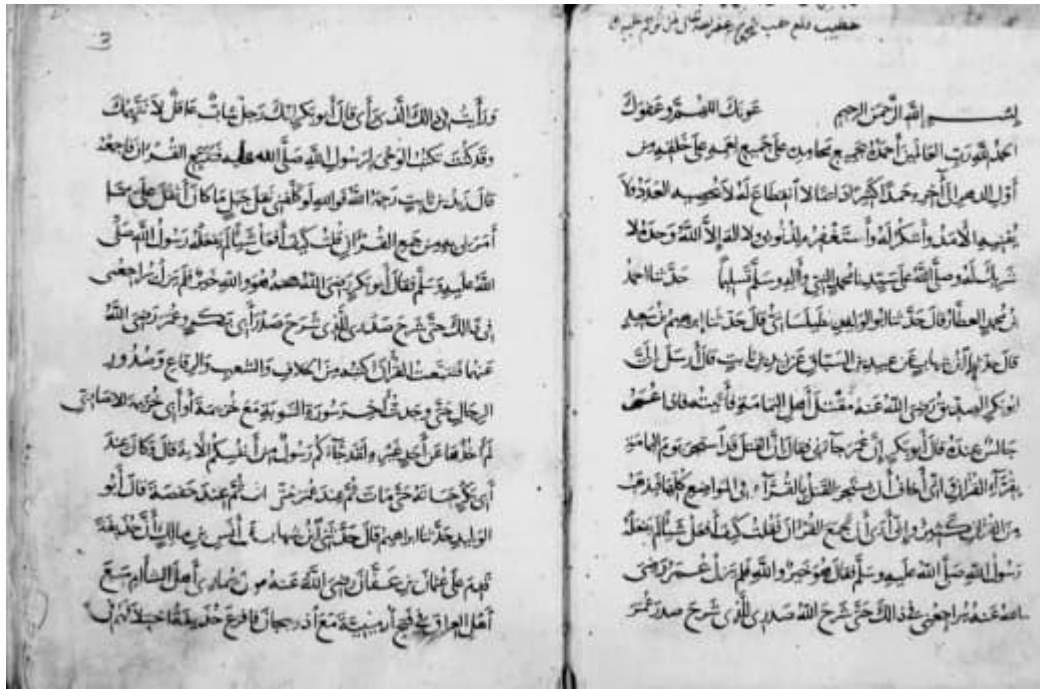 بسم الله الرحمن الرحيم عونك اللهم وعفوك
الحمد لله رب العالمين أحمده بجميع محامده على جميع نعمه على خلقه من
أول الدهر إلى آخره حمدا كثيرا دائما لا انقطاع له لا نحصيه العدد ولا
يفنيها الأمد وأشكر له وأستغفره لذنوبي ولا إله إلا الله وحده لا
شريك له وصلى الله على سيدنا محمد النبي وآله وسلم تسليما حدثنا احمد
بن محمد العطار قال حدثنا ابو الوليد قال حدثنا ابرهيم بن سعد
قال حدثنا ابن شهاب عن عبيد بن السباق عن زيد بن ثابت قال أرسل إلي
ابو بكر الصديق رضي الله عنه مقتل أهل اليمامة فأتيته فاذا عمر
جالس عنده فقال أبو بكر إن عمر جآءني فقال إن القتل قد استحر يوم اليمامة
بقرآء القرآن وإني أخاف أن يستحر القتل بالقرآء في المواضع كلها فيذهب
من القرآن كثير وإني أرى أن تجمع القرآن فقلت كيف أفعل شيئا لم يفعله
رسول الله صلى الله عليه وسلم فقال هو خير والله فلم يزل عمر رضي
الله عنه يراجعني في ذالك حتى شرح الله صدري للذي شرح صدر عمر
ورأيت في ذالك الذي رأى قال أبو بكر إنك رجل شاب عاقل لا نتهمك
وقد كنت تكتب الوحي لرسول الله صلى الله عليه فتتبع القرآن فاجمعه
قال زيد بن ثابت رحمه الله فوالله لو كلفني نقل جبل ما كان أثقل علي مما
أمرني به من جمع القرآن قلت كيف أفعل شيئا لم يفعله رسول الله صلى
الله عليه وسلم فقال أبو بكر رضي الله عنه هو والله خير فلم يزل يراجعني
في ذالك حتى شرح صدري للذي شرح صدر أبي بكر وعمر رضي الله
عنهما فتتبعت القرآن اكتبه من الاكتاف والعسب والرقاع وصدور
الرجال حتى وجدت آخر سورة التوبة مع خزيمة أو أبي خزيمة الانصاري
لم أجدها عن أحد غيره ولقد جآءكم رسول من أنفسكم الآية قال فكان عند
أبي بكر حياته حتى مات ثم عند عمر حتى مات ثم عند حفصة قال أبو
الوليد حدثنا ابراهيم قال حدثني ابن شهاب عن أنس بن مالك أن حذيفة
قدم على عثمان بن عفان رضي الله عنه وكان يغازي أهل الشام مع
أهل العراق في فتح أرمينية مع أذربيجان فافزع حذيفة اختلافهم في